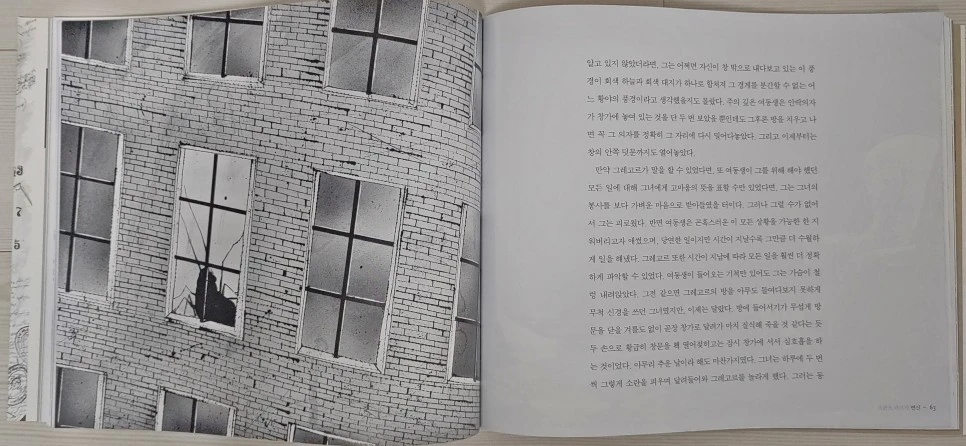 알고 있지 않았더라면, 그는 어쩌면 자신이 창 밖으로 내다보고 있는 이 풍
경이 회색 하늘과 회색 대지가 하나로 합쳐져 그 경계를 분간할 수 없는 어
느 황야의 풍경이라고 생각했을지도 몰랐다. 주의 깊은 여동생은 안락의자
가 창가에 놓여 있는 것을 단 두 번 보았을 뿐인데도 그후론 방을 치우고 나
면 꼭 그 의자를 정확히 그 자리에 다시 밀어다놓았다. 그리고 이제부터는
창의 안쪽 덧문까지도 열어놓았다.
만약 그레고르가 말을 할 수 있었다면, 또 여동생이 그를 위해 해야 했던
모든 일에 대해 그녀에게 고마움의 뜻을 표할 수만 있었다면, 그는 그녀의
봉사를 보다 가벼운 마음으로 받아들였을 터이다. 그러나 그럴 수가 없어
서 그는 괴로웠다. 반면 여동생은 곤혹스러운 이 모든 상황을 가능한 한 지
워버리고자 애썼으며, 당연한 일이지만 시간이 지날수록 그만큼 더 수월하
게 일을 해냈다. 그레고르 또한 시간이 지남에 따라 모든 일을 훨씬 더 정확
하게 파악할 수 있었다. 여동생이 들어오는 기척만 있어도 그는 가슴이 철
렁 내려앉았다. 그전 같으면 그레고르의 방을 아무도 들여다보지 못하게
무척 신경을 쓰던 그녀였지만, 이제는 달랐다. 방에 들어서기가 무섭게 방
문을 닫을 겨를도 없이 곧장 창가로 달려가 마치 질식해 죽을 것 같다는 듯
두 손으로 황급히 창문을 홱 열어젖히고는 잠시 창가에 서서 심호흡을 하
는 것이었다. 아무리 추운 날이라 해도 마찬가지였다. 그녀는 하루에 두 번
씩 그렇게 소란을 피우며 달려들어와 그레고르를 놀라게 했다. 그러는 동
변신 - 63